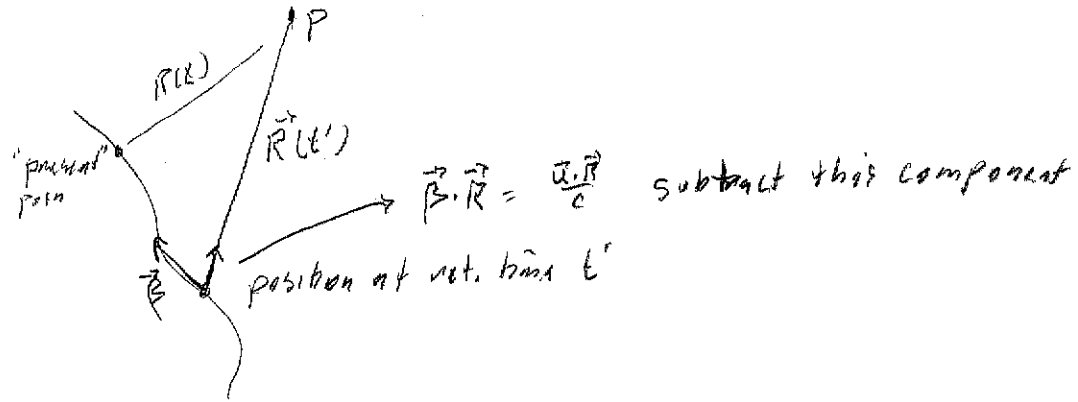 P
R(t)
R⃗(t')
"present"
posn
β⃗·R⃗ = u⃗·R⃗/c subtract this component
β⃗
position at ret. time t'